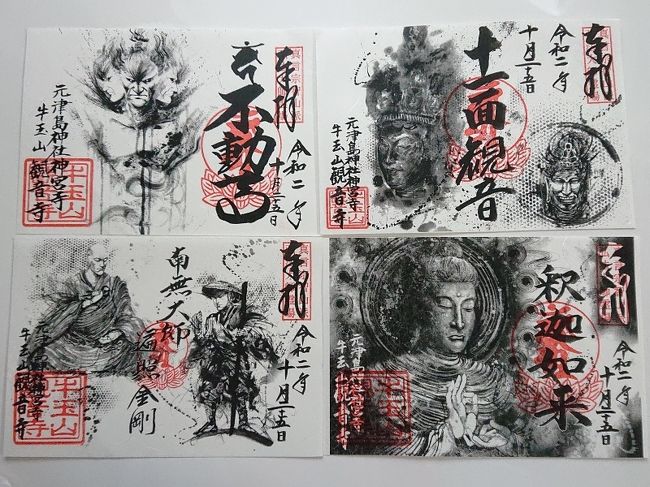 奉拝
令和二年
十月二五日
不動
元津島神社神宮寺
牛玉山観音寺
牛玉山
観音寺
奉拝
令和二年
十月二五日
十一面観音
元津島神社神宮寺
牛玉山観音寺
奉拝
令和二年
十月二五日
南無大師
遍照金剛
元津島神社神宮寺
牛玉山観音寺
牛玉山
観音寺
奉拝
令和二年
十月二五日
釈迦如来
元津島神社神宮寺
牛玉山観音寺
牛玉山
観音寺